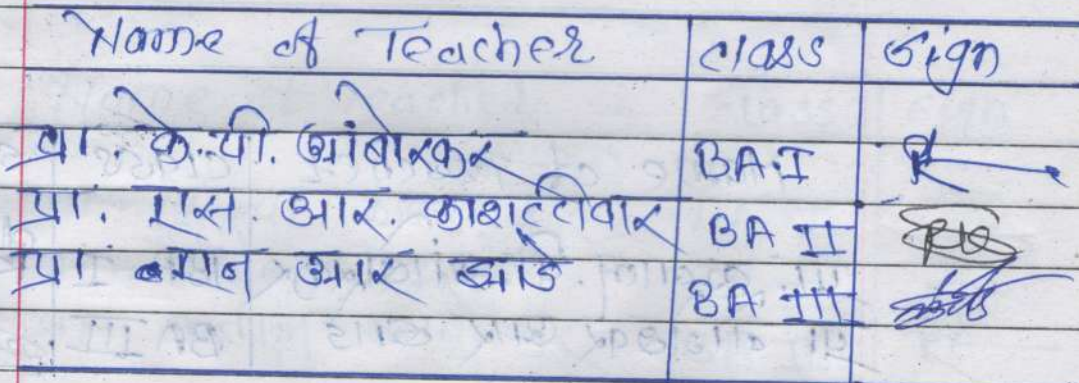 Name of Teacher class Sign
प्रा. के. पी. आंबोरकर BA.I
प्रा. एस. आर. काशट्टीवार BA II
प्रा आर झाडे BA III